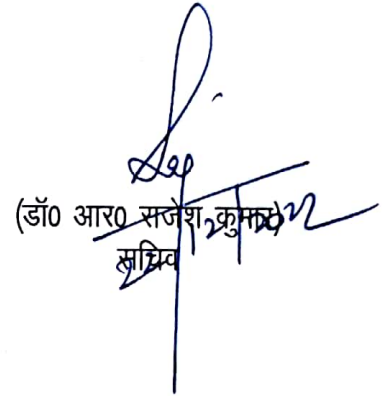 (डॉ0 आर0 राजेश कुमार)
सचिव